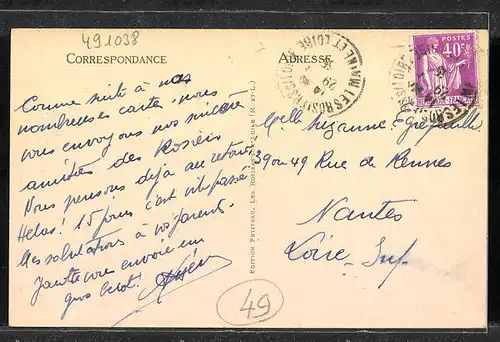 491038
CORRESPONDANCE
ADRESSE
POSTES
40c
LES ROSIERS
NE ET LOIRE
29
Comme suite à nos
nombreuses carte. nous
vous envoyons nos sincères
amitiés des Rosiers
Nous pensons déjà au retour
Helas! 15 jours c'est vite passé
Mes salutations à vos parents.
vous envoie un
gros
Melle Suzanne
39 ou 49 Rue de Rennes
Nantes
Loire Inf
EDITION PETITEAU, LES ROSIERS-SUR-LOIRE (M.-ET-L.)
49